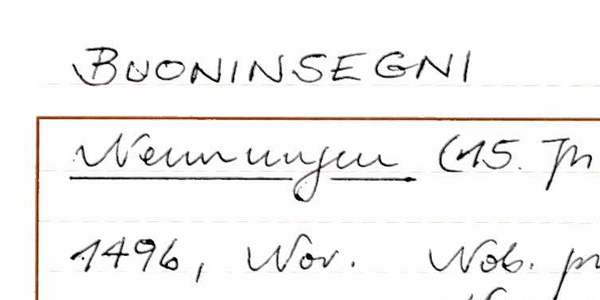 BUONINSEGNI
Nennungen (15. Jh
1496, Nov. Nob.